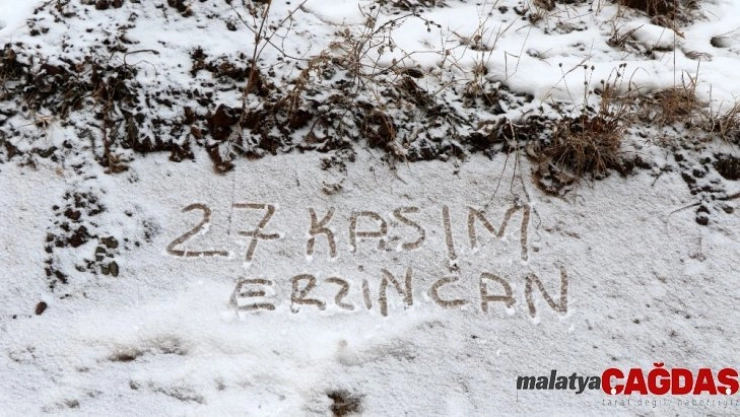 27 KASIM
ERZINCAN
malatyaÇAĞDAŞ
taraf değil, habersigiz